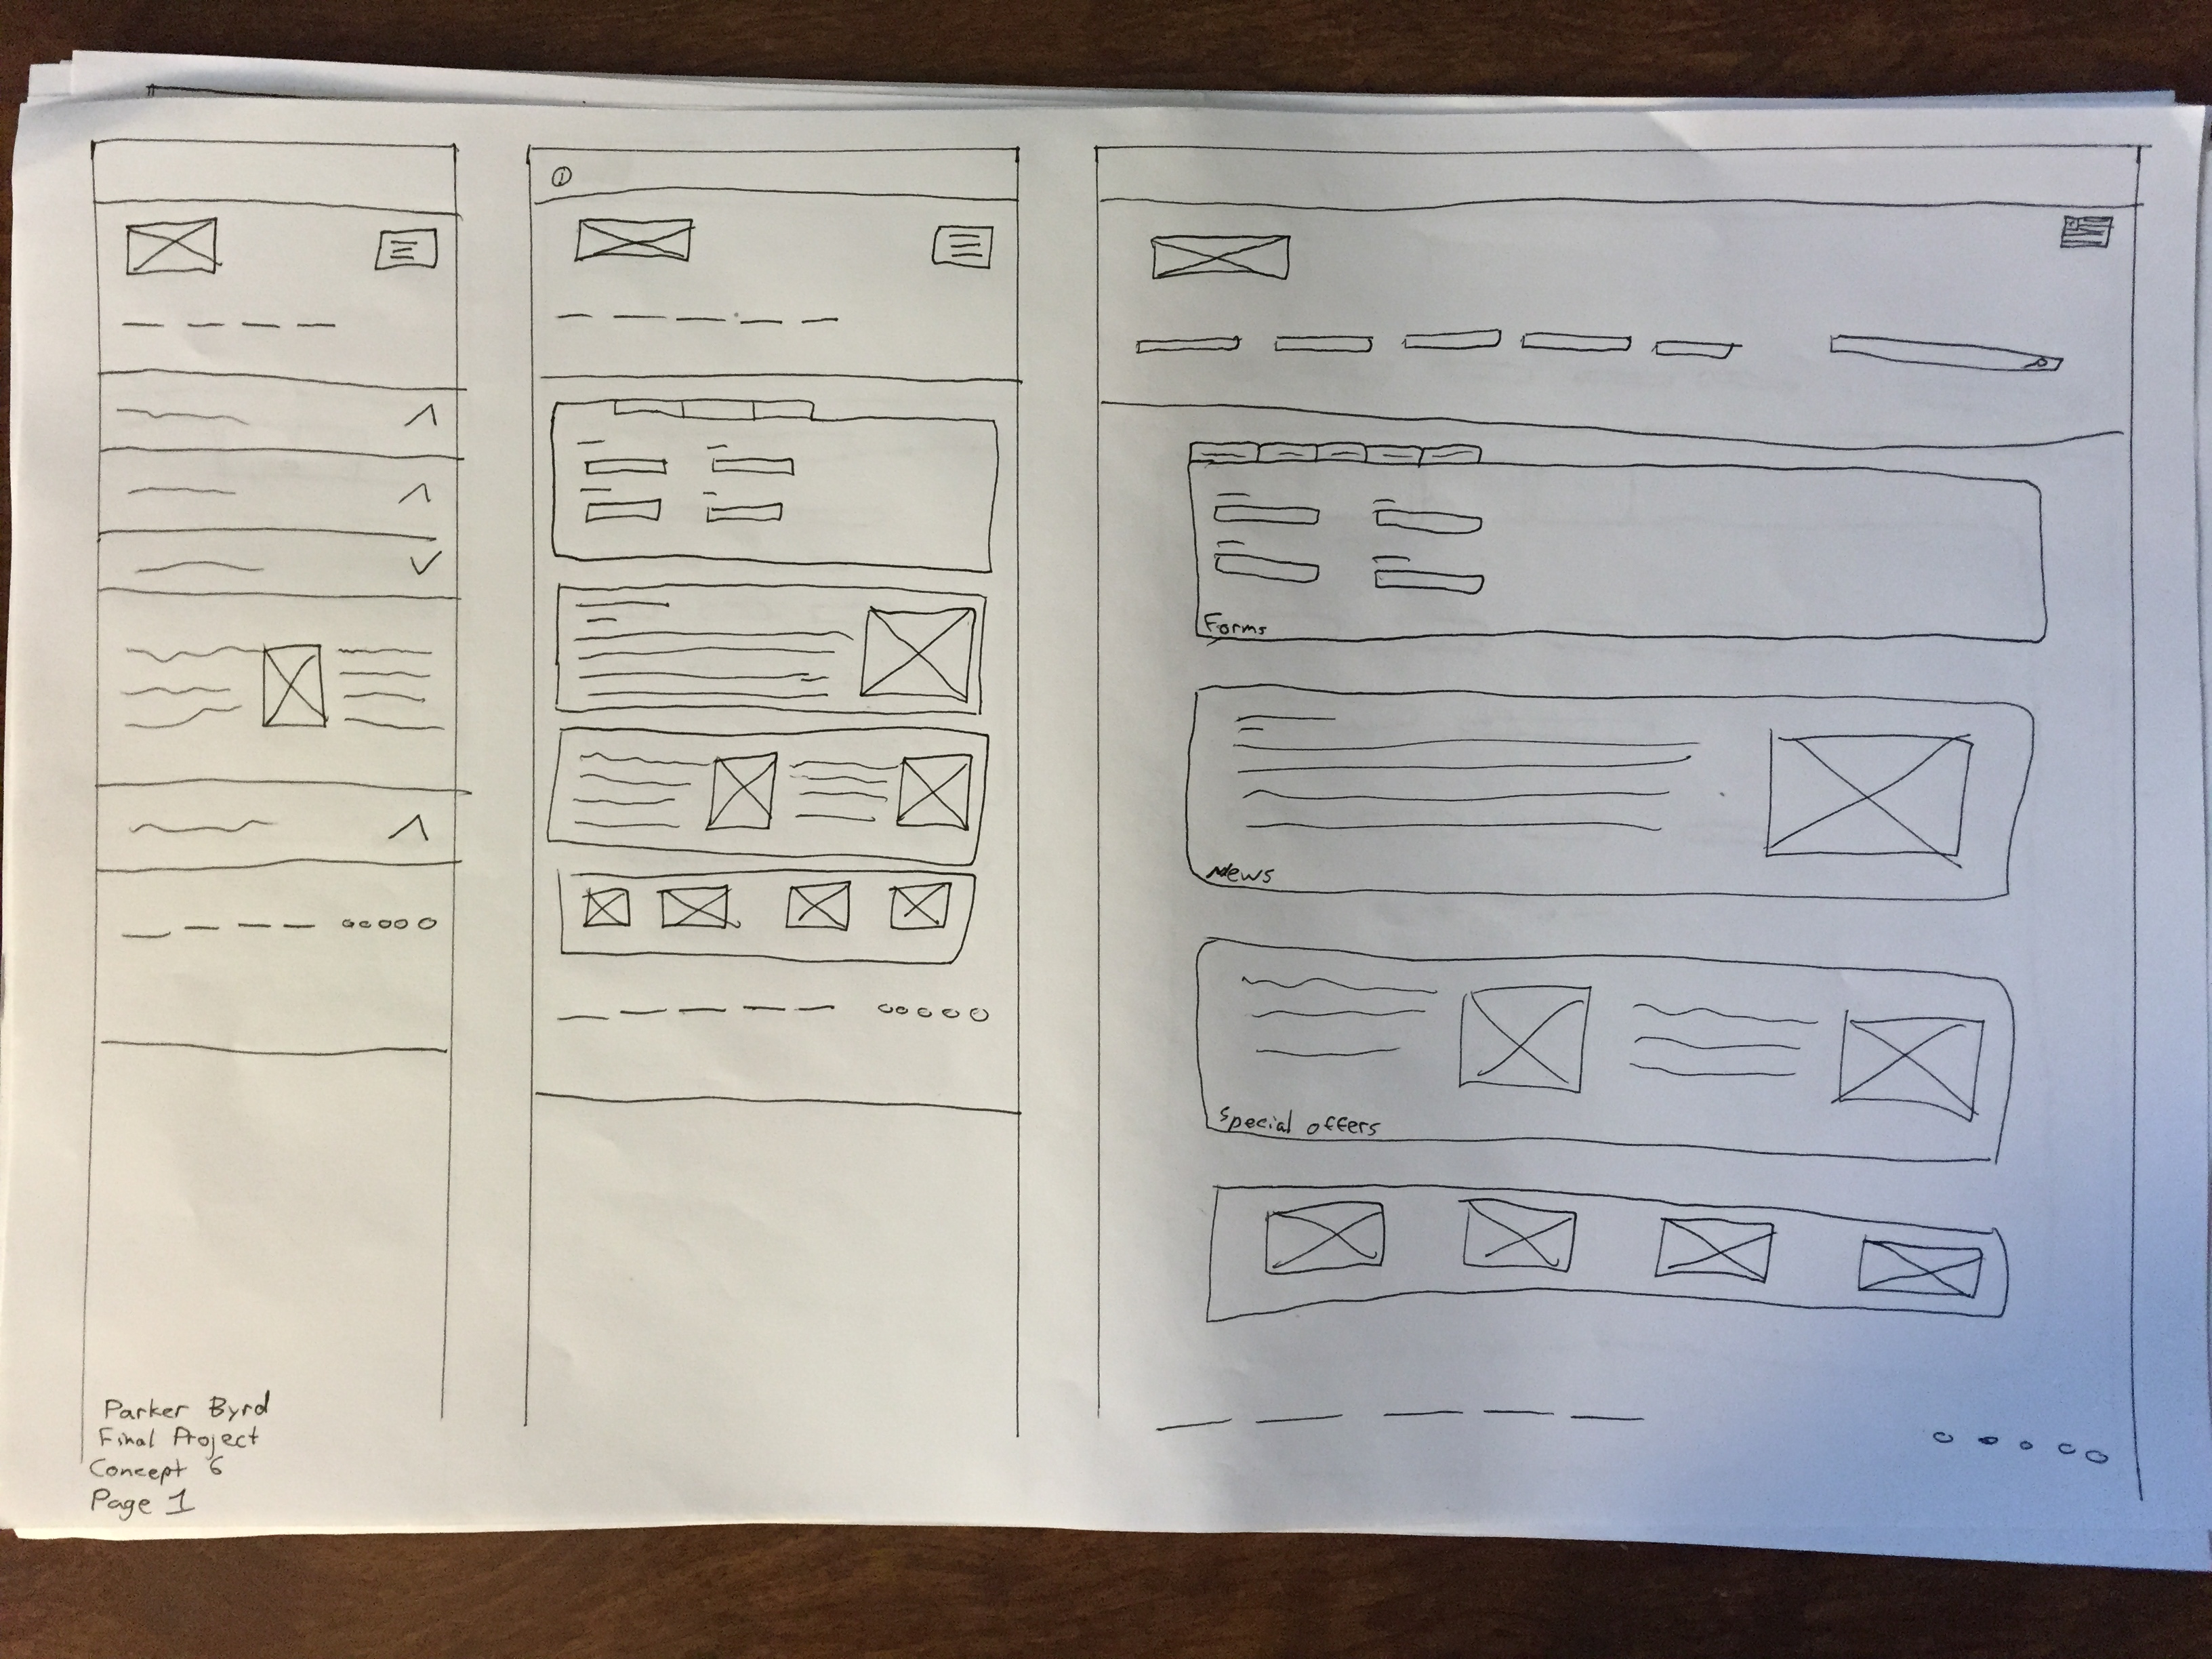 Forms
News
Special offers
Parker Byrd
Final Project
Concept 6
Page 1